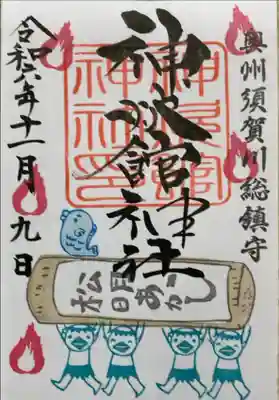 奥州須賀川総鎮守
神炊館神社
神炊館
神社印
令和六年十一月九日
松明あかし